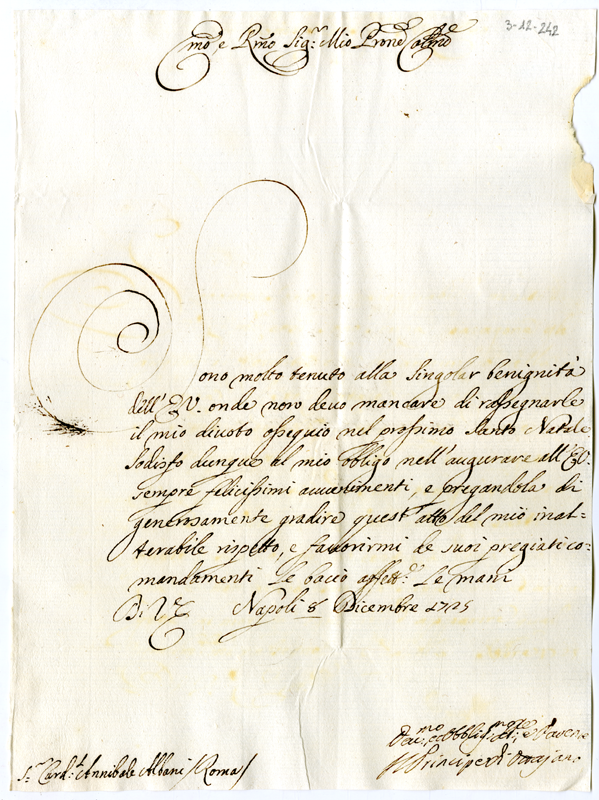 3-12-242
Emo e Rmo Sig.r Mio Prone Colmo
Sono molto tenuto alla singolar benignità
dell'E.V. onde non devo mancare di rassegnarle
il mio divoto ossequio nel prossimo Santo Natale
Sodisfo dunque al mio obligo nell'augurare all'E.V.
sempre felicissimi avvenimenti, e pregandola di
generosamente gradire quest'atto del mio inal-
terabile rispetto, e favorirmi de suoi pregiati co-
mandamenti Le bacio affett.e Le mani
Di V.E. Napoli 8 Dicembre 1725
Dev.mo ed Obblig.mo
Il Principe di Ottajano
S.r Card.l Annibale Albani /Roma/